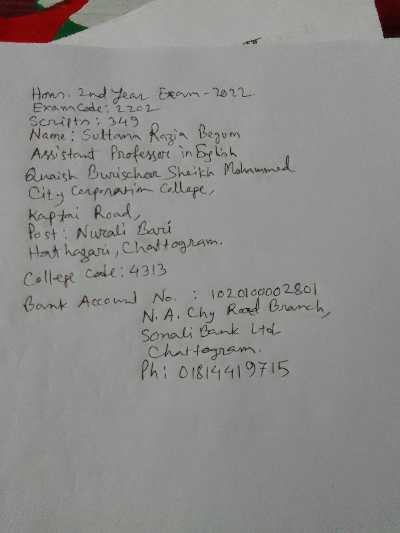 Hons. 2nd Year Exam-2022.
Exam Code: 2202
Scripts: 349
Name: Sultana Razia Begum
Assistant Professor in English
Quaish Burischar Sheikh Mohammed
City Corporation College,
Kaptai Road,
Post: Nurali Bari
Hathazari, Chattogram.
College Code: 4313
Bank Account No. : 1020100002801
N. A. Chy Road Branch,
Sonali Bank Ltd
Chattogram.
Ph: 01814419715